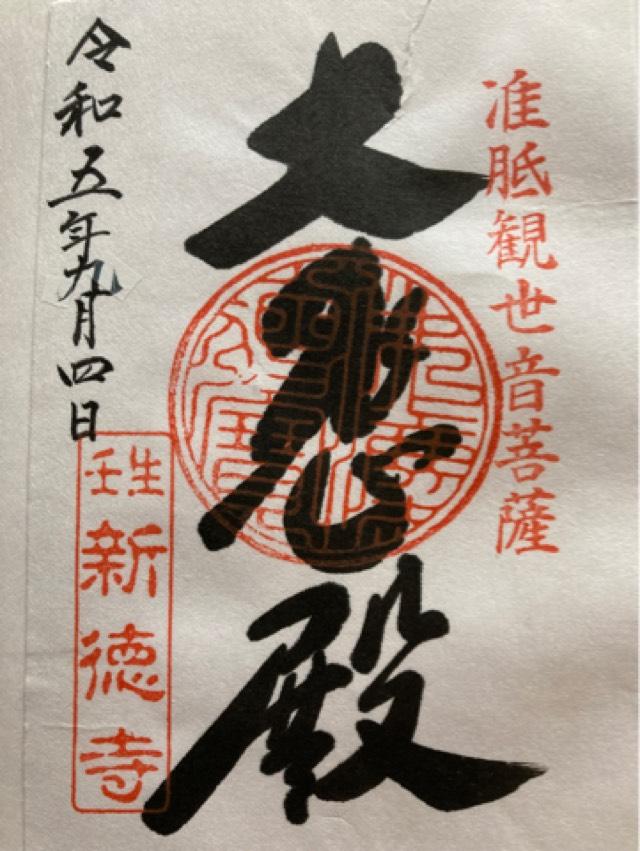 准胝観世音菩薩
大悲殿
令和五年九月四日
壬生
新徳寺